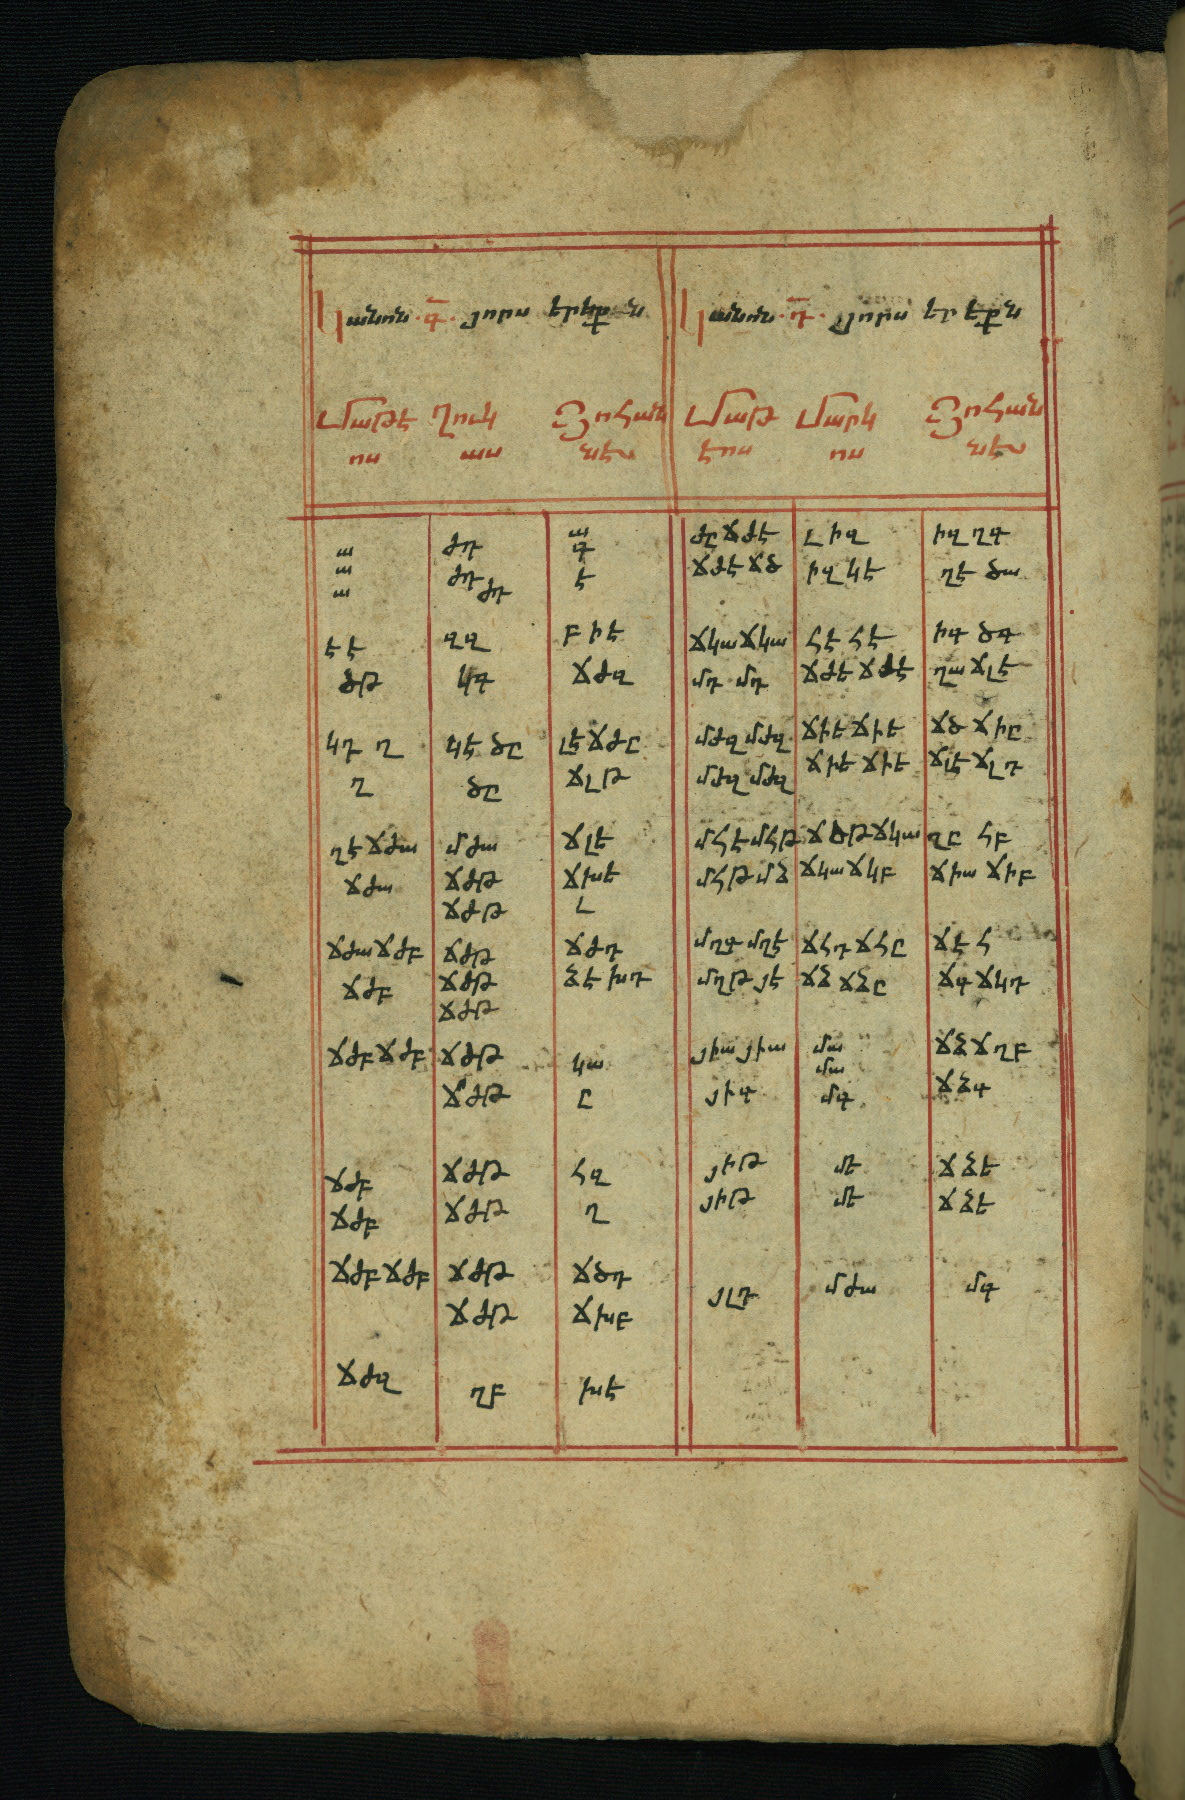 Կանոն ·գ· յորս երեքն
Մաթէ Ղուկ Յոհան
ոս աս նէս
ա
ա
ա
է է
ծթ
կդ ղ
ղ
ղէ ճժա
ճժա
ճժա ճժբ
ճժբ
ճժբ ճժբ
ճժբ
ճժբ
ճժբ ճժբ
ճժզ
ժդ
ժդ
ժդ
զզ
կգ
կէ ծը
ծը
մժա
ճժթ
ճժթ
ճժթ
ճժթ
ճժթ
ճժթ
ճժթ
ճժթ
ճժթ
ճժթ
ճժթ
ղբ
ա
գ
է
բ իէ
ճժզ
լէ ճժը
ճլթ
ճլէ
ճխէ
լ
ճժդ
ձէ խդ
կա
ը
հզ
ղ
ճծդ
ճխբ
խէ
Կանոն ·դ· յորս երեքն
Մաթ Մարկ Յոհան
էոս ոս նէս
ժը ճժէ
ճժէ ճծ
ճկա ճկա
մդ մդ
մժզ մժզ
մժզ մժզ
մհէ մհթ
մհթ մձ
մղգ մղէ
մղթ յէ
յիա յիա
յիգ
յիթ
յիթ
յլդ
լ իզ
իզ կէ
հէ հէ
ճժէ ճժէ
ճիէ ճիէ
ճիէ ճիէ
ճծթ ճկա
ճկա ճկբ
ճհդ ճհը
ճձ ճձը
մա
մա
մգ
մէ
մէ
մժա
իզ ղգ
ղէ ծա
իգ ծգ
ղա ճլէ
ճծ ճիը
ճլէ ճլդ
ղը հբ
ճիա ճիբ
ճէ հ
ճգ ճկդ
ճձ ճղբ
ճձգ
ճձէ
ճձէ
մգ